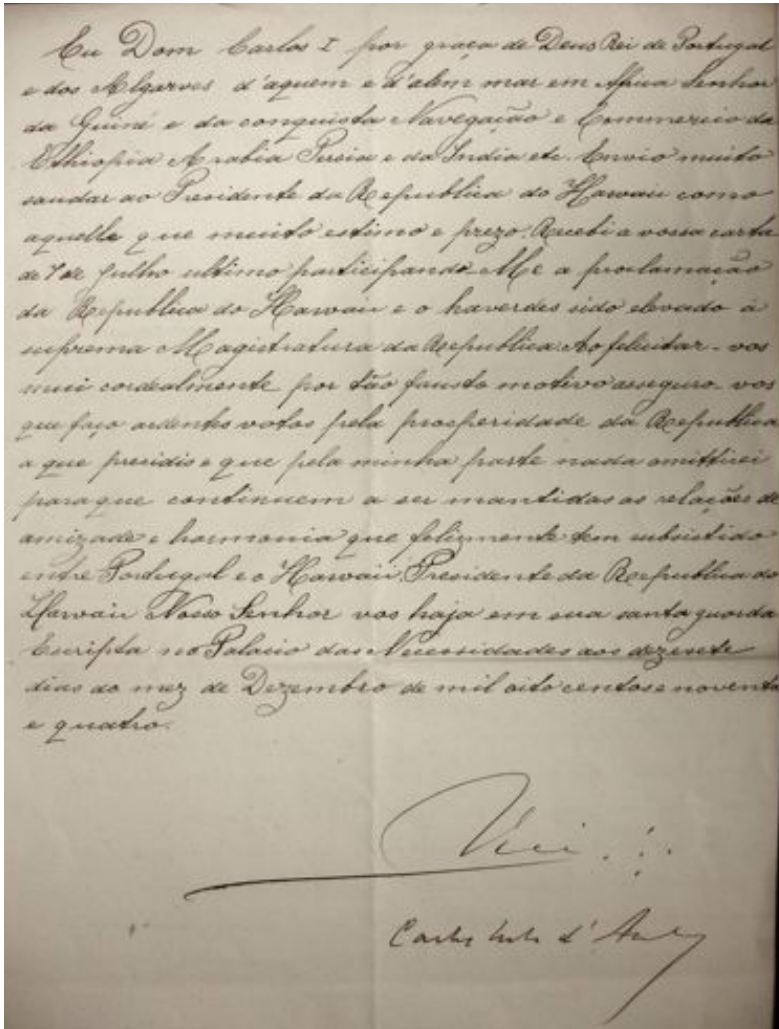 Eu Dom Carlos I por graça de Deus Rei de Portugal
e dos Algarves d'aquem e d'alem mar em Africa Senhor
da Guiné e da conquista Navegação e Commercio da
Ethiopia Arabia Persia e da India etc. Envio muito
saudar ao Presidente da Republica do Hawaii como
aquelle que muito estimo e prezo. Recebi a vossa carta
de 7 de Julho ultimo participando-Me a proclamação
da Republica do Hawaii e o haverdes sido elevado á
suprema Magistratura da Republica. Ao felicitar-vos
mui cordealmente por tão fausto motivo asseguro-vos
que faço ardentes votos pela prosperidade da Republica
a que presidis e que pela minha parte nada omittirei
para que continuem a ser mantidas as relações de
amizade e harmonia que felizmente tem subsistido
entre Portugal e o Hawaii. Presidente da Republica do
Hawaii Nosso Senhor vos haja em sua santa guarda
Escripta no Palacio das Necessidades aos dezesete
dias do mez de Dezembro de mil oito centos e noventa
e quatro.
Carlos d'